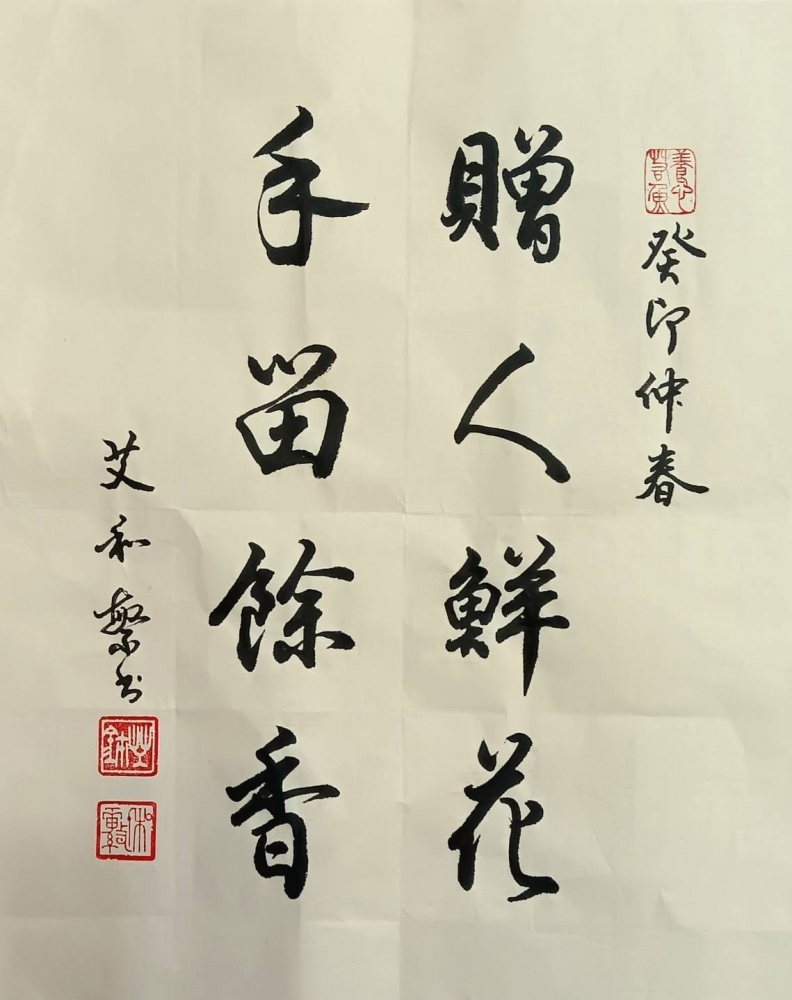 癸卯仲春
贈人鮮花
手留餘香
艾和繁书